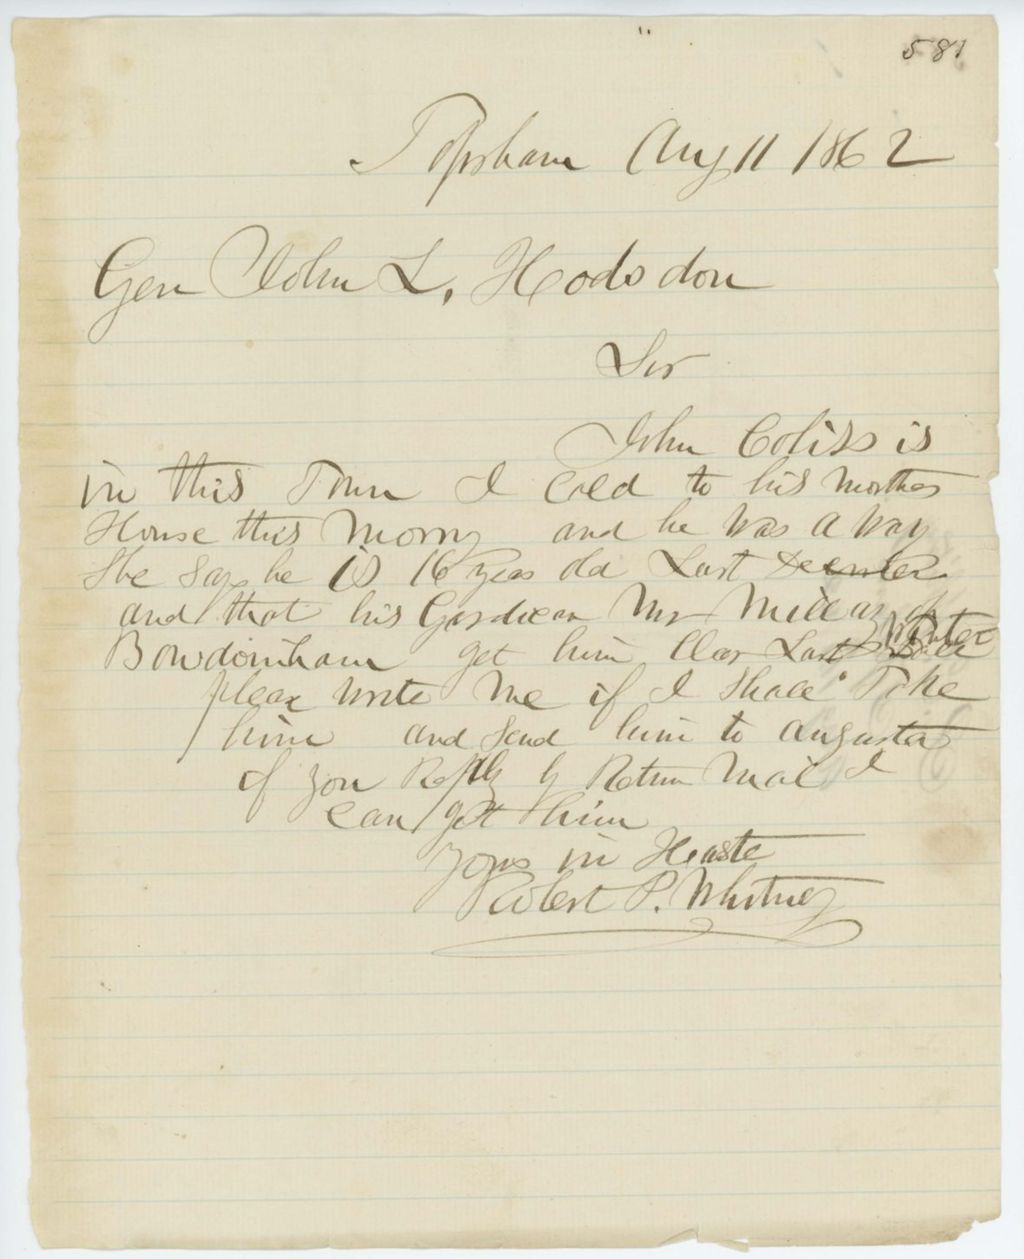 581
Topsham Aug 11 1862
Gen John L. Hodsdon
Sir
John Coliss is
in this Town I Caled to his Mother
House this Morng and he was a way
She says he is 16 years old Last
and that his Gardiean Mr Millay of
Bowdoinham get him Clear Last Winter
pleas write me if I Shall Take
him and Send him to Augusta
if you Reply by Return Mail I
can get him
Yours in Heaste
Robert P. Whitney